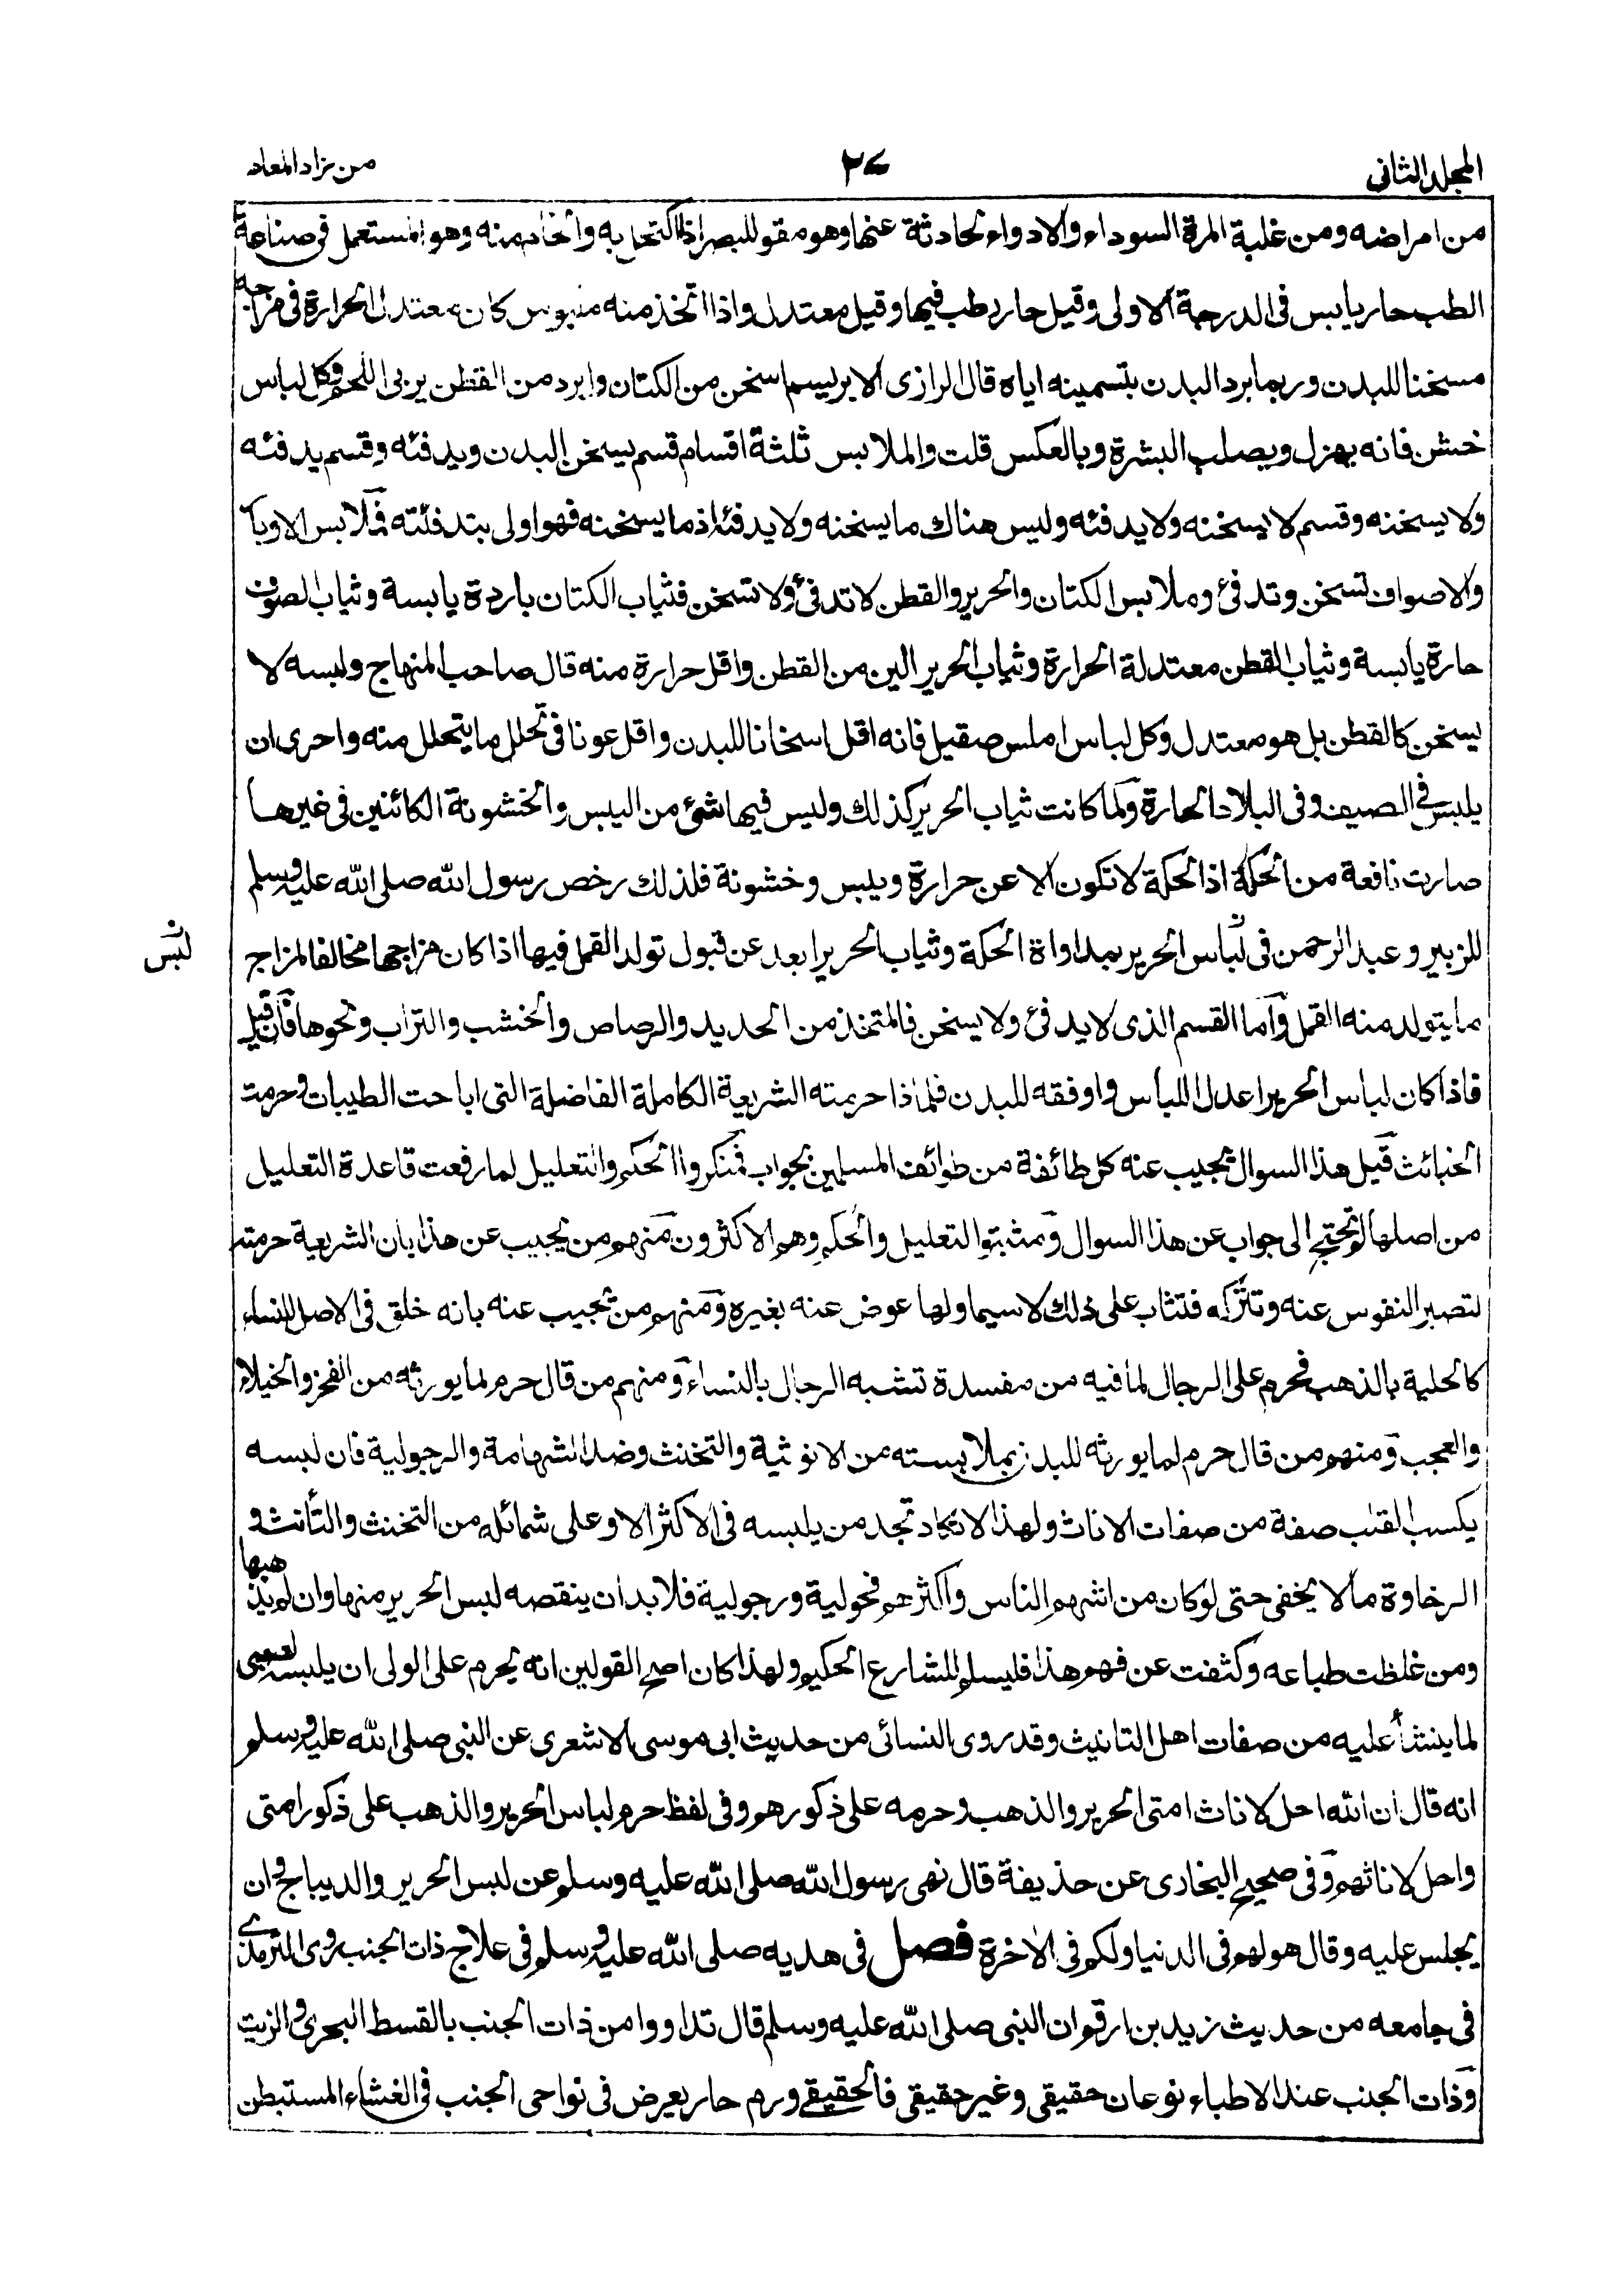 المجلد الثانى
٢٧
من زاد المعاد
من امراضه ومن غلبة المرة السوداء والادواء الحادثة عنها وهو مقو للبصر اذا اكتحل به والخام منه وهو المستعمل فى صناعة
الطب حار يابس فى الدرجة الاولى وقيل حار رطب فيها وقيل معتدل واذا اتخذ منه ملبوس كان معتدل الحرارة فى مزاجه
مسخنا للبدن وربما برد البدن بتسمينه اياه قال الرازى الابريسم اسخن من الكتان وابرد من القطن يربى اللحم وكل لباس
خشن فانه يهزل ويصلب البشرة وبالعكس قلت والملابس ثلثة اقسام قسم يسخن البدن ويدفئه وقسم يدفئه
ولا يسخنه وقسم لا يسخنه ولا يدفئه وليس هناك ما يسخنه ولا يدفئه اذ ما يسخنه فهو اولى بتدفئته فملابس الاوبار
والاصواف تسخن وتدفئ وملابس الكتان والحرير والقطن لا تدفئ ولا تسخن فثياب الكتان باردة يابسة وثياب الصوف
حارة يابسة وثياب القطن معتدلة الحرارة وثياب الحرير الين من القطن واقل حرارة منه قال صاحب المنهاج ولبسه لا
يسخن كالقطن بل هو معتدل وكل لباس املس صقيل فانه اقل اسخانا للبدن واقل عونا فى تحلل ما يتحلل منه واحرى ان
يلبس فى الصيف وفى البلاد الحارة ولما كانت ثياب الحرير كذلك وليس فيها شئ من اليبس والخشونة الكائنين فى غيرها
صارت نافعة من الحكة اذ الحكة لا تكون الا عن حرارة ويبس وخشونة فلذلك رخص رسول الله صلى الله عليه وسلم
للزبير وعبد الرحمن فى لباس الحرير بمداواة الحكة وثياب الحرير ابعد عن قبول تولد القمل فيها اذا كان مزاجها مخالفا لمزاج
لبس
ما يتولد منه القمل واما القسم الذى لا يدفئ ولا يسخن فالمتخذ من الحديد والرصاص والخشب والتراب ونحوها فان قيل
فاذا كان لباس الحرير اعدل اللباس واوفقه للبدن فلماذا حرمته الشريعة الكاملة الفاضلة التى اباحت الطيبات وحرمت
الخبائث قيل هذا السوال يجيب عنه كل طائفة من طوائف المسلمين بجواب فمنكروا الحكم والتعليل لما رفعت قاعدة التعليل
من اصلها لم تحتج الى جواب عن هذا السوال ومثبتوا التعليل والحكم وهم الاكثرون منهم من يجيب عن هذا بان الشريعة حرمته
لتصبر النفوس عنه وتتركه فتثاب على ذلك لاسيما ولها عوض عنه بغيره ومنهم من يجيب عنه بانه خلق فى الاصل للنساء
كالحلية بالذهب فحرم على الرجال لما فيه من مفسدة تشبه الرجال بالنساء ومنهم من قال حرم لما يورثه من الفخر والخيلاء
والعجب ومنهم من قال حرم لما يورثه للبدن بملابسته من الانوثية والتخنث وضد الشهامة والرجولية فان لبسه
يكسب القلب صفة من صفات الاناث ولهذا لا تكاد تجد من يلبسه فى الاكثر الا وعلى شمائله من التخنث والتأنث و
الرخاوة ما لا يخفى حتى لو كان من اشهم الناس واكثرهم فحولية ورجولية فلا بد ان ينقصه لبس الحرير منها وان لم يذهبها
ومن غلظت طباعه وكثفت عن فهم هذا فليسلم للشارع الحكيم ولهذا كان اصح القولين انه يحرم على الولى ان يلبسه الصبى
لما ينشأ عليه من صفات اهل التانيث وقد روى النسائى من حديث ابى موسى الاشعرى عن النبى صلى الله عليه وسلم
انه قال ان الله احل لاناث امتى الحرير والذهب وحرمه على ذكورهم وفى لفظ حرم لباس الحرير والذهب على ذكور امتى
واحل لاناثهم وفى صحيح البخارى عن حذيفة قال نهى رسول الله صلى الله عليه وسلم عن لبس الحرير والديباج وان
يجلس عليه وقال هو لهم فى الدنيا ولكم فى الاخرة فصل فى هديه صلى الله عليه وسلم فى علاج ذات الجنب روى الترمذى
فى جامعه من حديث زيد بن ارقم ان النبى صلى الله عليه وسلم قال تداووا من ذات الجنب بالقسط البحرى والزيت
وذات الجنب عند الاطباء نوعان حقيقى وغير حقيقى فالحقيقى ورم حار يعرض فى نواحى الجنب فى الغشاء المستبطن